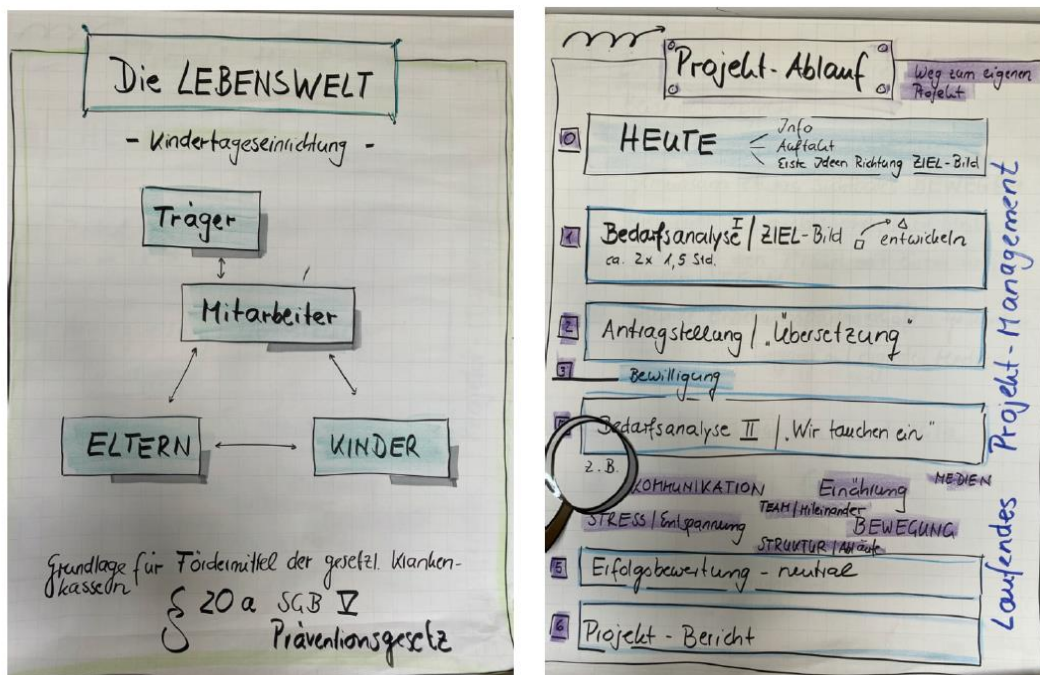 Die LEBENSWELT
- Kindertageseinrichtung -
Träger
Mitarbeiter
ELTERN
KINDER
Grundlage für Fördermittel der gesetzl. Kranken-
kassen
§ 20 a SGB V
Präventionsgesetz
Projekt-Ablauf
Weg zum eigenen
Projekt
0
HEUTE
Info
Auftakt
Erste Ideen Richtung ZIEL-Bild
1
Bedarfsanalyse I / ZIEL-Bild entwickeln
ca. 2x 1,5 Std.
2
Antragstellung / "Übersetzung"
3
Bewilligung
Bedarfsanalyse II / "Wir tauchen ein"
z.B.
KOMMUNIKATION
Ernährung
MEDIEN
STRESS / Entspannung
TEAM / Miteinander
BEWEGUNG
STRUKTUR / Abläufe
5
Erfolgsbewertung - neutral
6
Projekt - Bericht
Laufendes Projekt-Management